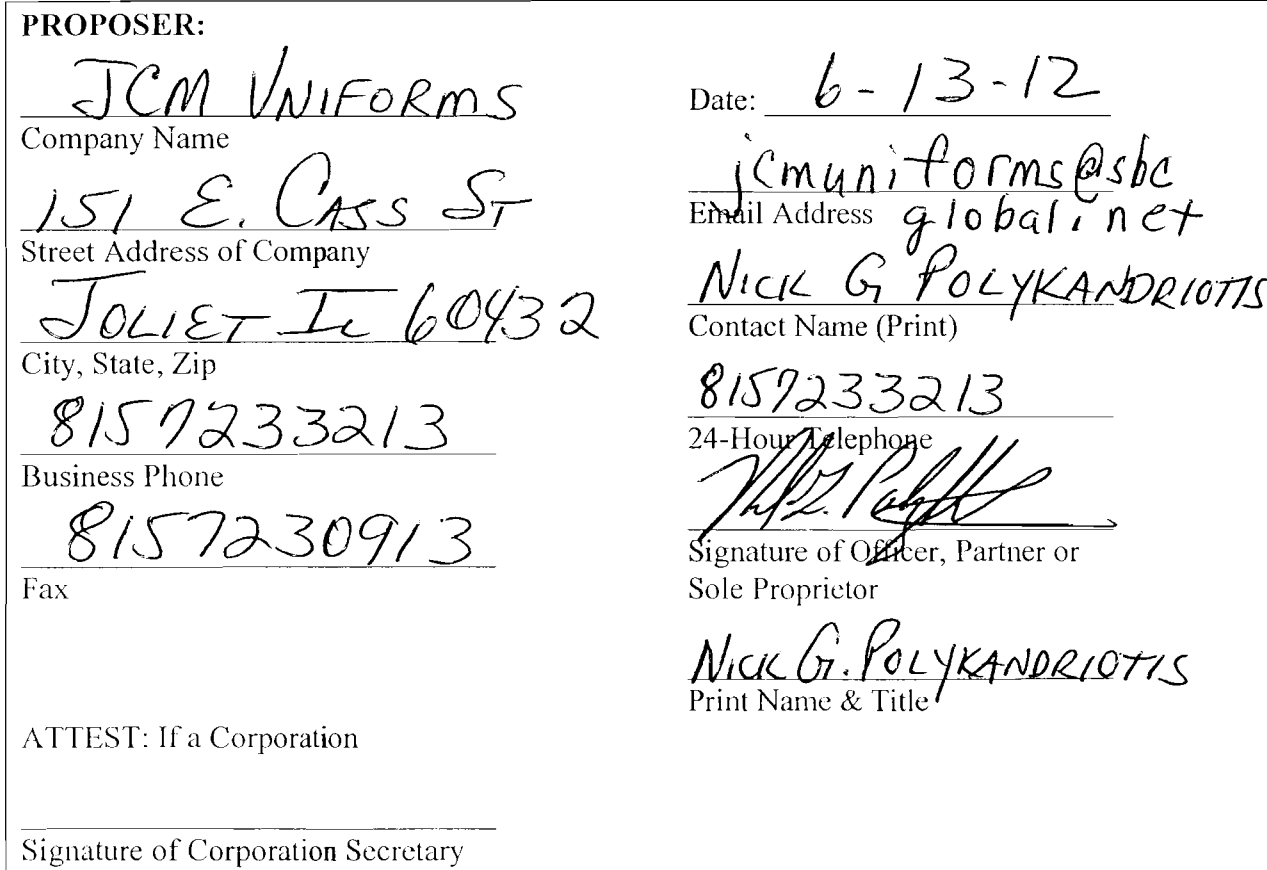 PROPOSER:
JCM UNIFORMS
Company Name
151 E. CASS ST
Street Address of Company
JOLIET IL 60432
City, State, Zip
8157233213
Business Phone
8157230913
Fax
ATTEST: If a Corporation
Signature of Corporation Secretary
Date: 6-13-12
jcmuniforms@sbc
Email Address global.net
NICK G POLYKANDRIOTIS
Contact Name (Print)
8157233213
24-Hour Telephone
Signature of Officer, Partner or
Sole Proprietor
NICK G. POLYKANDRIOTIS
Print Name & Title